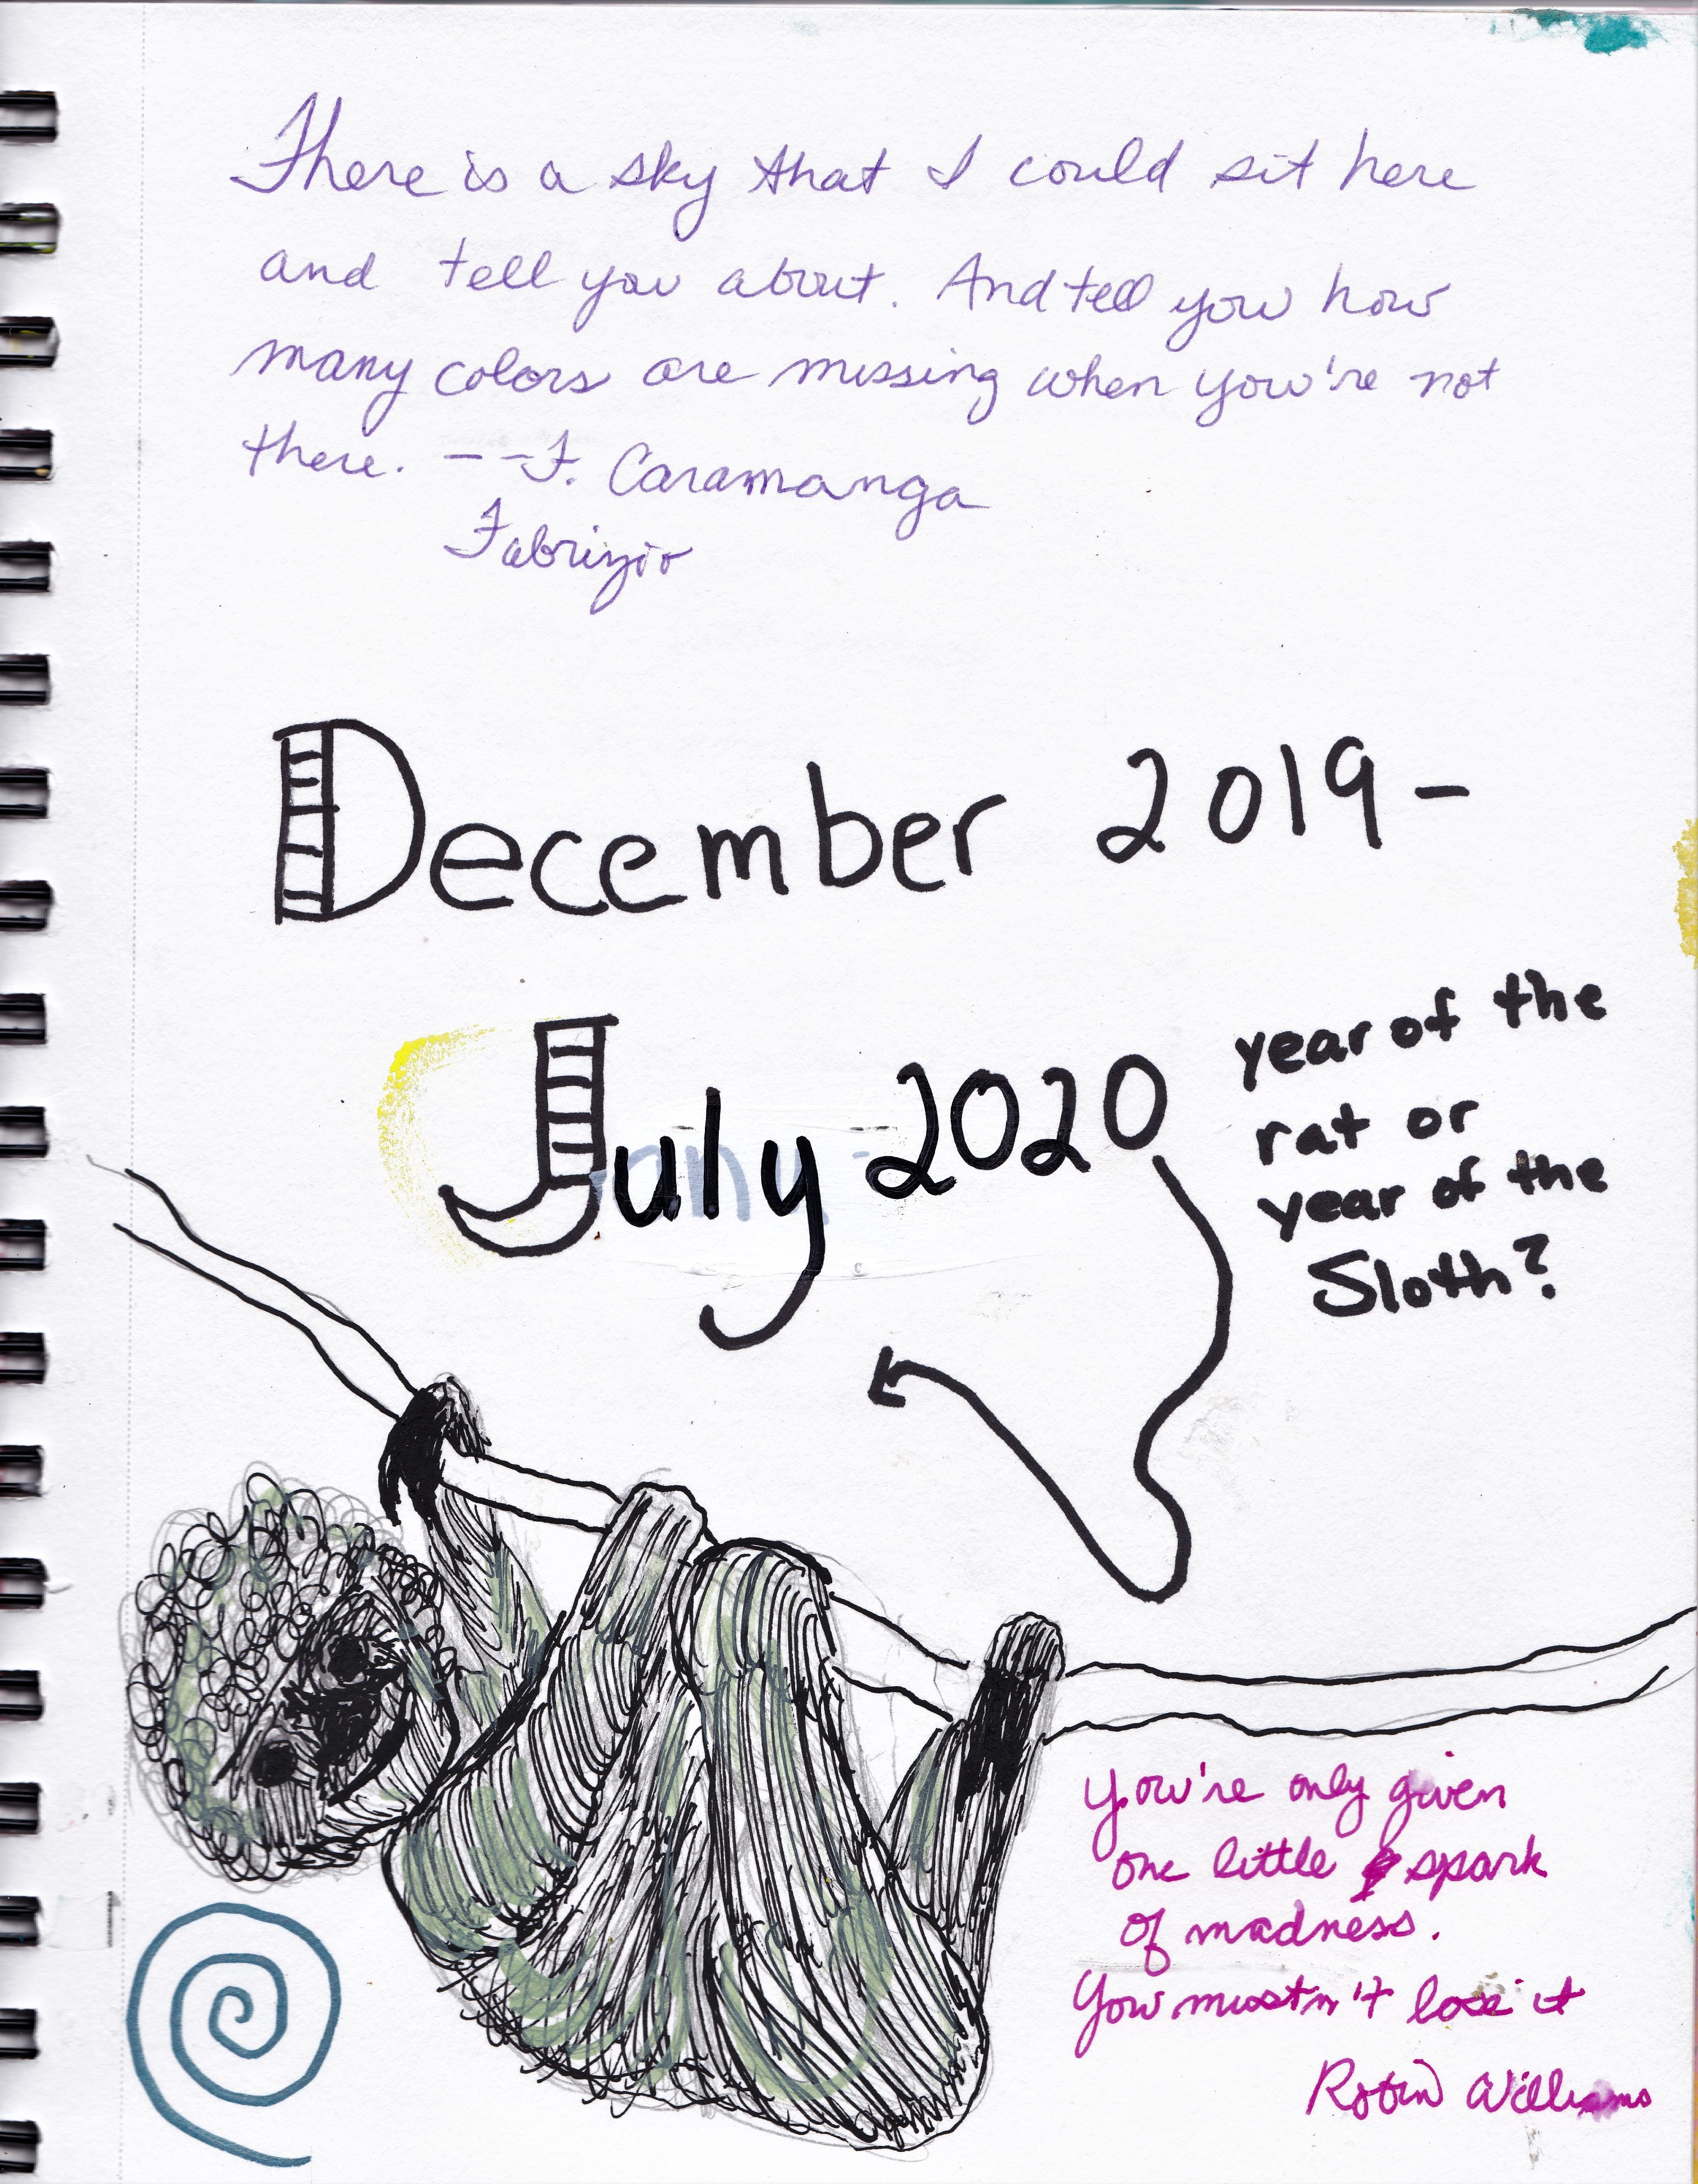 There is a sky that I could sit here
and tell you about. And tell you how
many colors are missing when you're not
there. -- F. Caramanga
Fabrizio
December 2019-
July 2020
year of the
rat or
year of the
Sloth?
You're only given
one little spark
of madness.
You mustn't lose it
Robin Williams